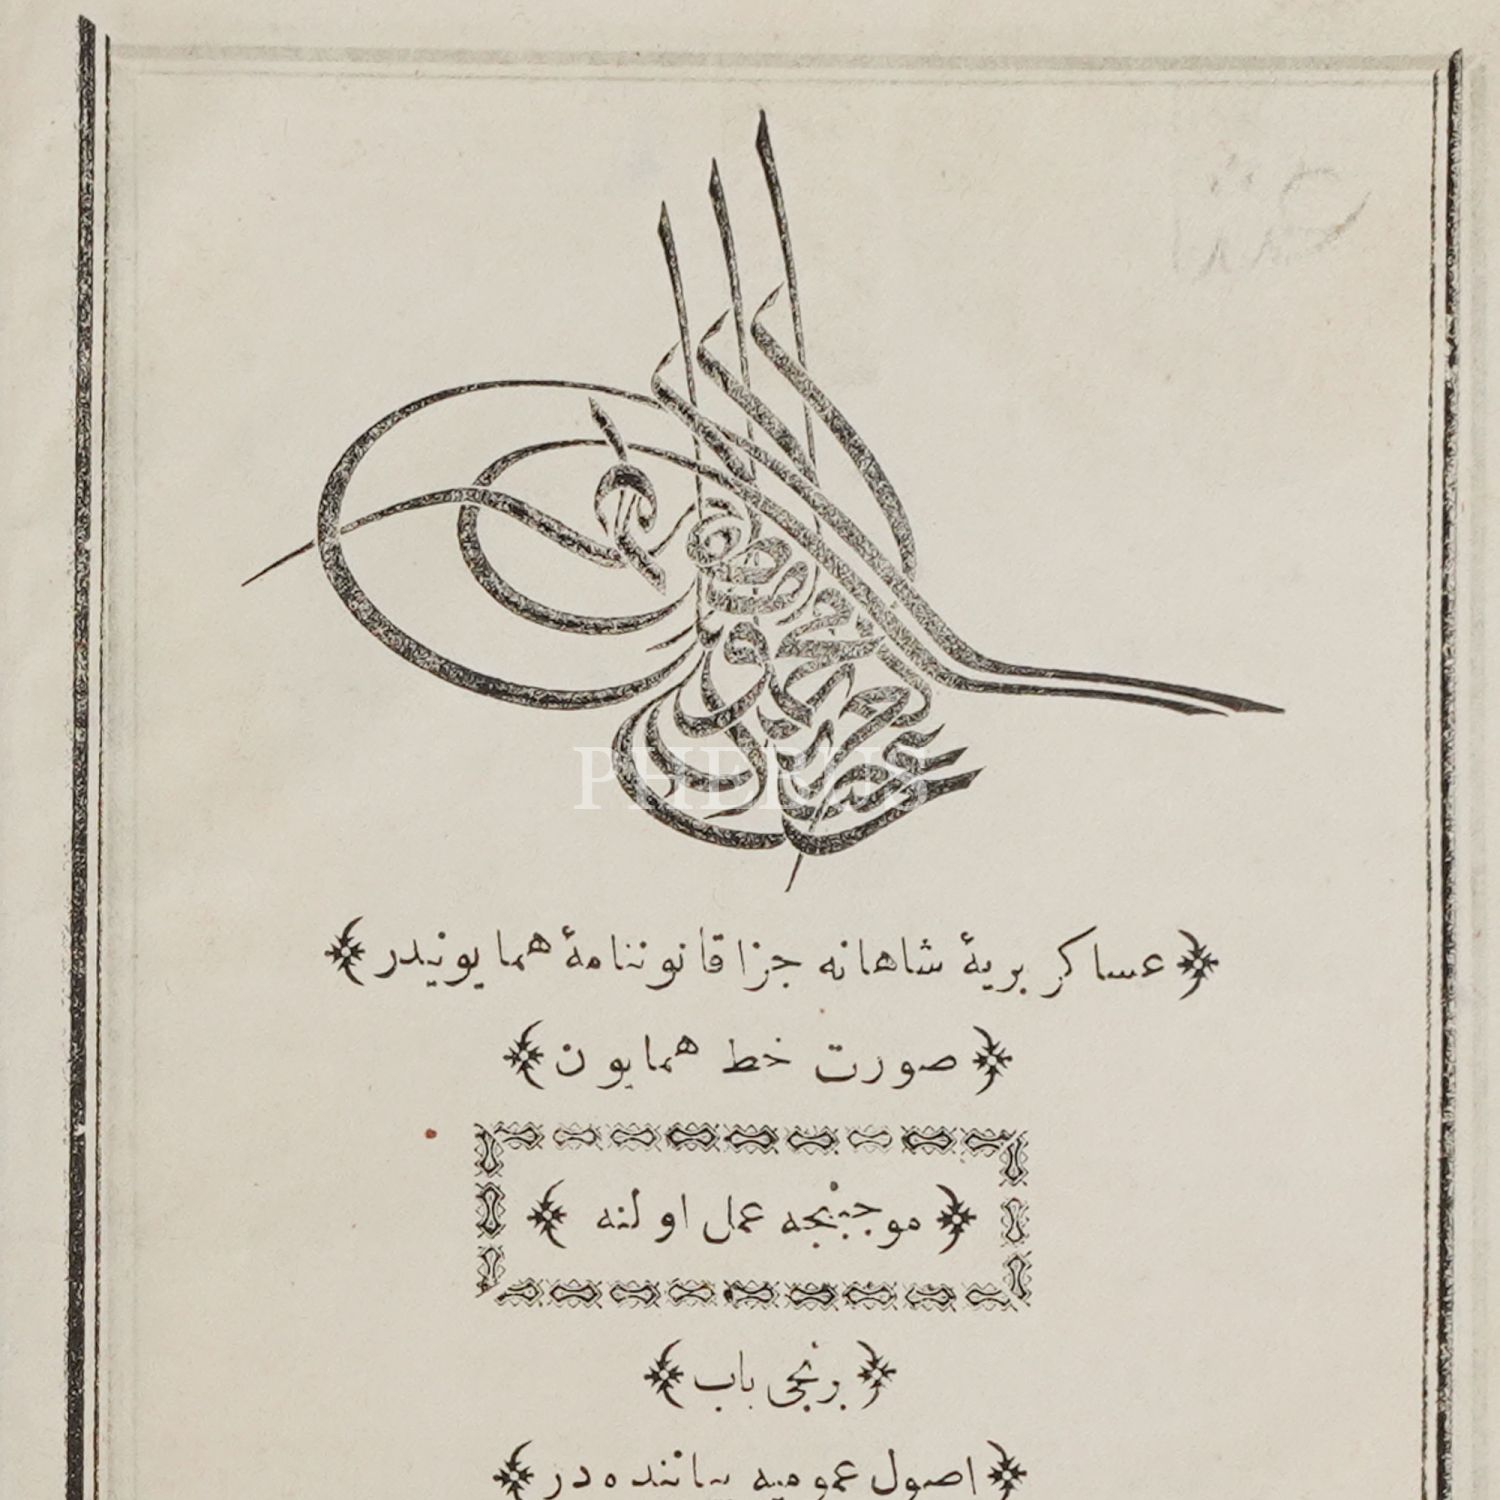 PHEBUS
عساكر بريۀ شاهانه جزا قانوننامۀ همايونيدر
صورت خط همايون
موجبنجه عمل اولنه
برنجى باب
اصول عموميه بياننده در